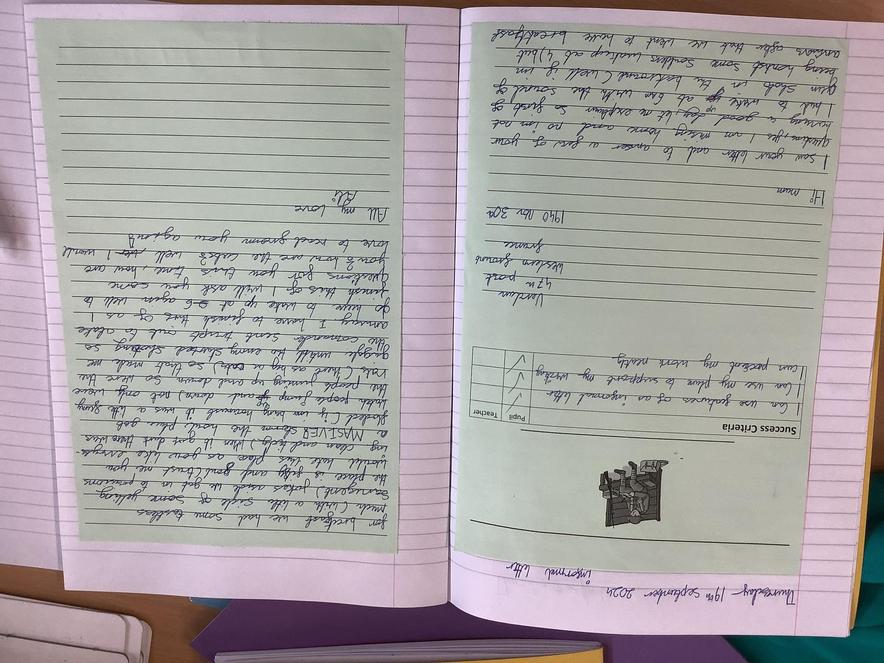 Thursday 19th September 2024
informal letter
Success Criteria
Pupil Teacher
I can use features of an informal letter
I can use my plan to support my writing
I can present my work neatly.
Verdun
47th post
Western front
france
1940 Nov 30th
Hi mum
I saw your letter and to anser a few of your
questions, yes I am missing home and no im not
having a good day let me explain so first of
I had to wake up at 6am with the sound of
gun shots in the (well if im
being honest some soilders wakeup at 4) but
anways after that we went to have breakfast
for breakfast we had some tastless
much (with a little side of some yelling
jokes aside we got in to posicions
the place is filfy and (trust me you
would hate this place as your like everyth-
ing clean and tidy) when it got dark there was
a MASIVER storm the hool place got
floded (if im bing honnest it was a litle funy
with people jumping up and down) not only were
the people jumping up and down so were the
rats (there as big as cats) so that made me
giggle untill the enmy started shooting so
the comander sent troops out to atake
anway I have to finish this of as I
go have to wake up at 6 again well to
finish this of I will ask you some
questions for you this time, how are
you? how are the cats? well I would
love to read from you again
All my love
Ali